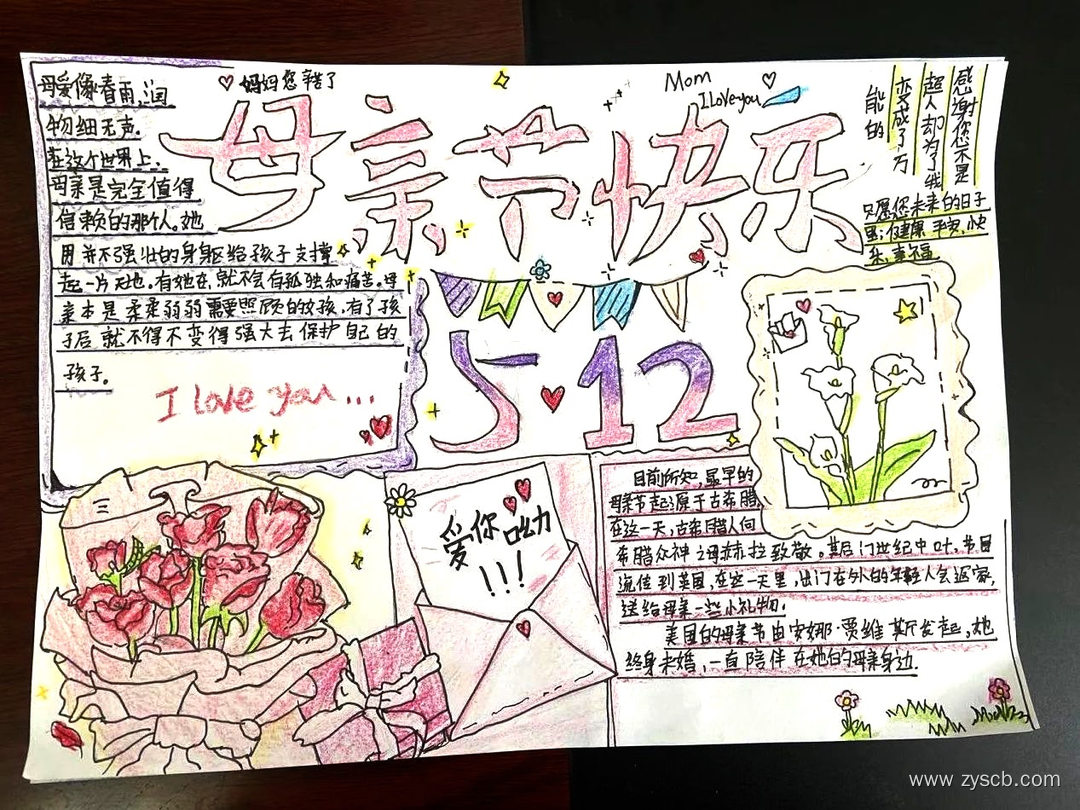 母爱像春雨,润
物细无声.
在这个世界上,
母亲是完全值得
信赖的那个人。她
用并不强壮的身躯给孩子支撑
起一片天地,有她在,就不会有孤独和痛苦。母
亲本是柔柔弱弱需要照顾的女孩,有了孩
子后就不得不变得强大去保护自己的
孩子。
I love you...
♡妈妈您辛苦了
母亲节快乐
Mom ♡
I love you
感谢您不是
超人却为了我
变成了万
能的
只愿您未来的日子
里,健康 平安,快
乐,幸福
5·12
爱你呦
!!!
目前所知,最早的
母亲节起源于古希腊,
在这一天,古希腊人向
希腊众神之母赫拉致敬。其后,17世纪中叶,节日
流传到英国,在这一天里,出门在外的年轻人会返家,
送给母亲一些小礼物.
美国的母亲节由安娜·贾维斯发起,她
终身未婚,一直陪伴在她的母亲身边.
www.zyscb.com